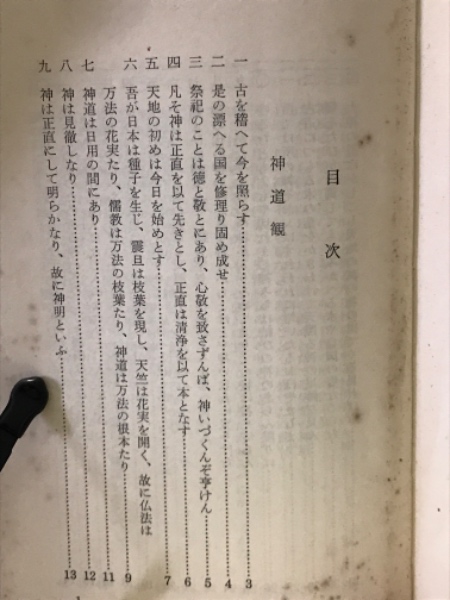 目次
神道観
一 古を稽へて今を照らす……3
二 是の漂へる国を修理り固め成せ……4
三 祭祀のことは徳と敬とにあり、心敬を致さずんば、神いづくんぞ享けん……5
四 凡そ神は正直を以て先きとし、正直は清浄を以て本となす……6
五 天地の初めは今日を始めとす……7
六 吾が日本は種子を生じ、震旦は枝葉を現し、天竺は花実を開く、故に仏法は
万法の花実たり、儒教は万法の枝葉たり、神道は万法の根本たり……9
七 神道は日用の間にあり……11
八 神は見徹しなり……12
九 神は正直にして明らかなり、故に神明といふ……13
1